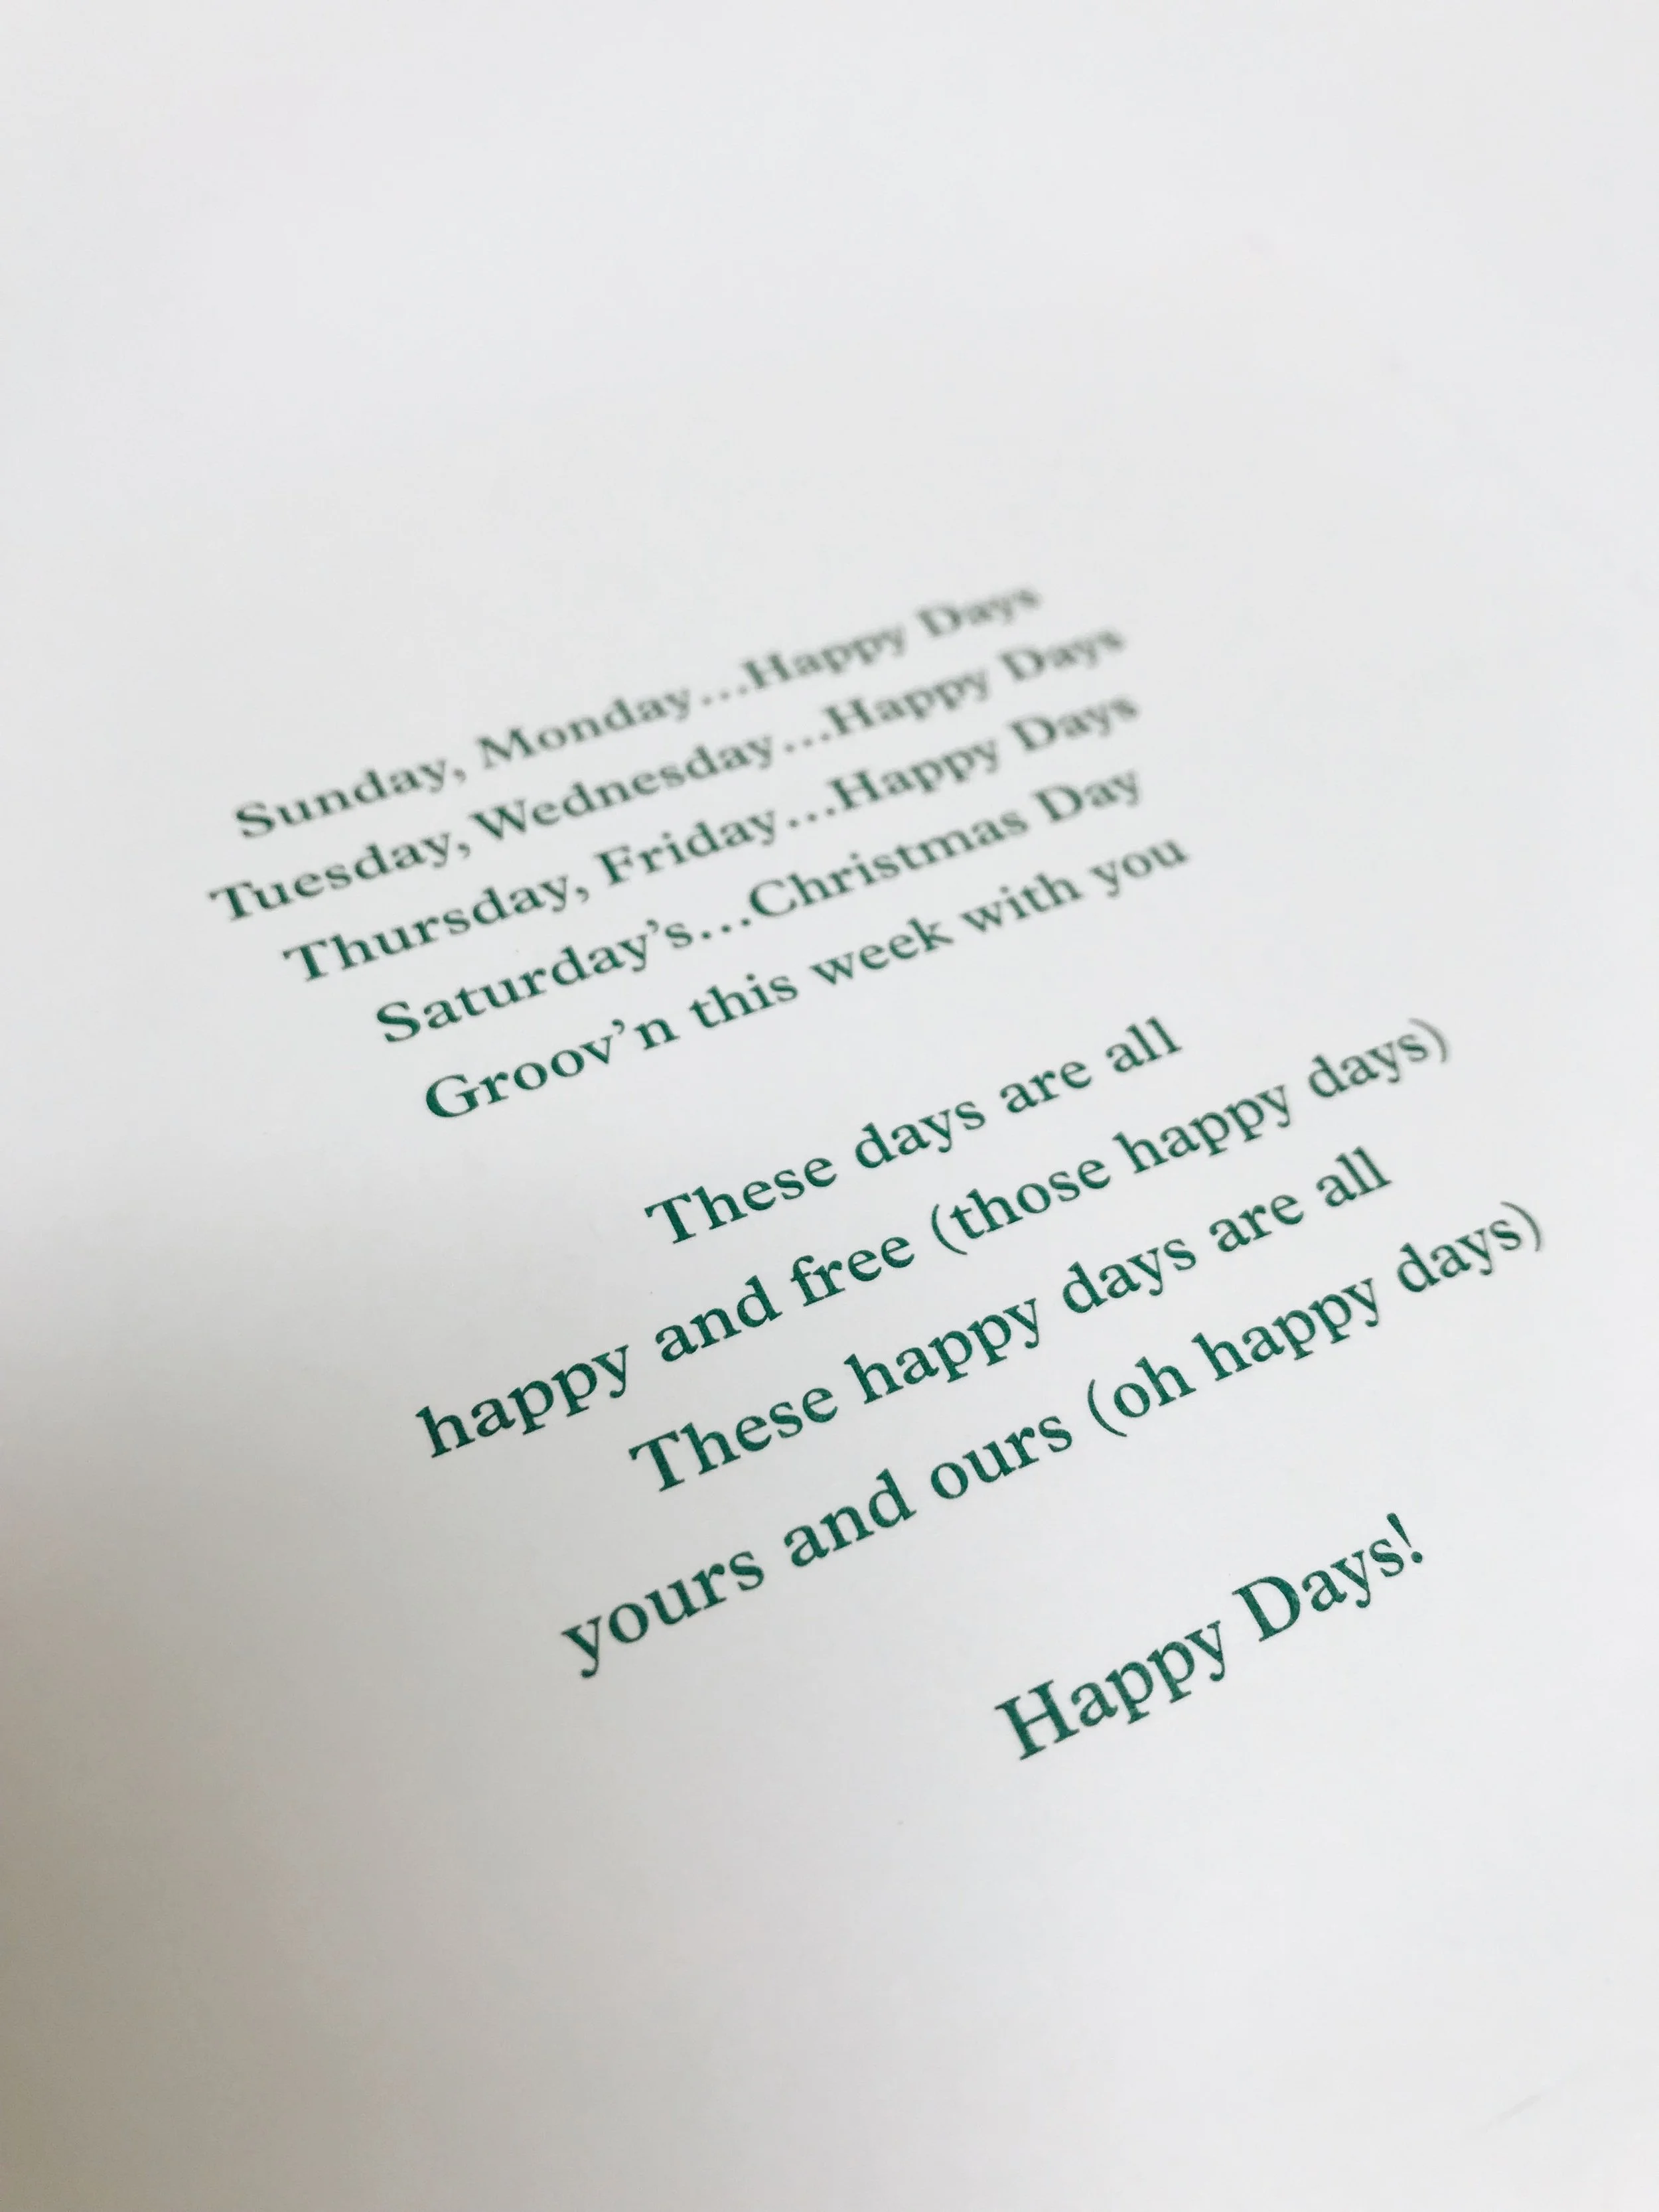 Sunday, Monday...Happy Days
Tuesday, Wednesday...Happy Days
Thursday, Friday...Happy Days
Saturday’s...Christmas Day
Groov’n this week with you
These days are all
happy and free (those happy days)
These happy days are all
yours and ours (oh happy days)
Happy Days!